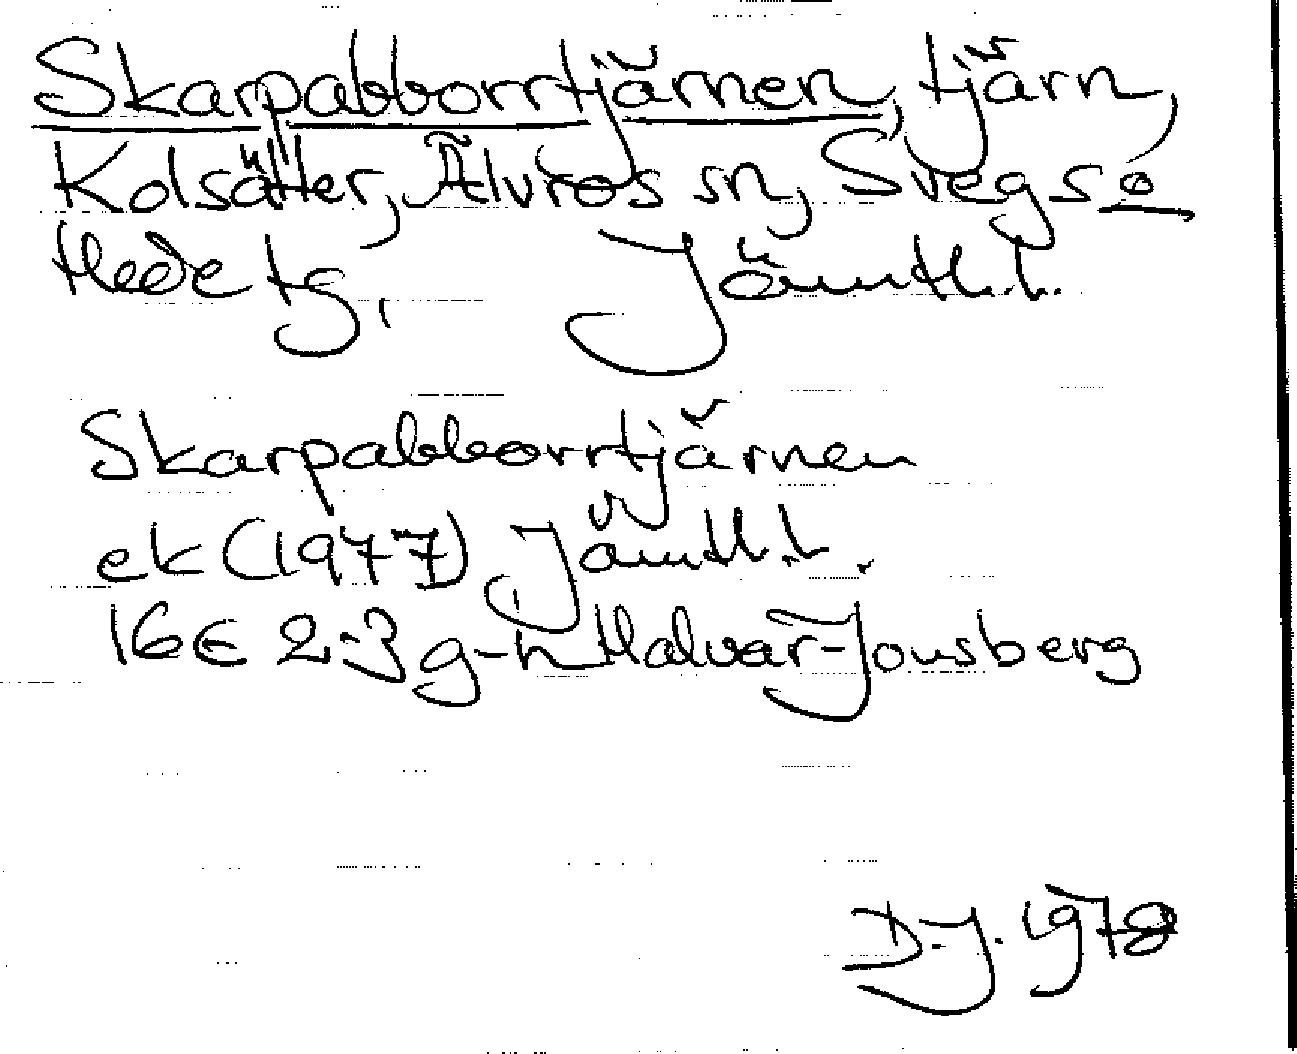 Skarpabborrtjärnen, tjärn,
Kolsätter, Älvros sn, Svegs o
Hede tg, Jämtl.l.
Skarpabborrtjärnen
ek (1977) Jämtl.l.
16E 2-3 g-h Malvar-Jonsberg
D.J. 1978